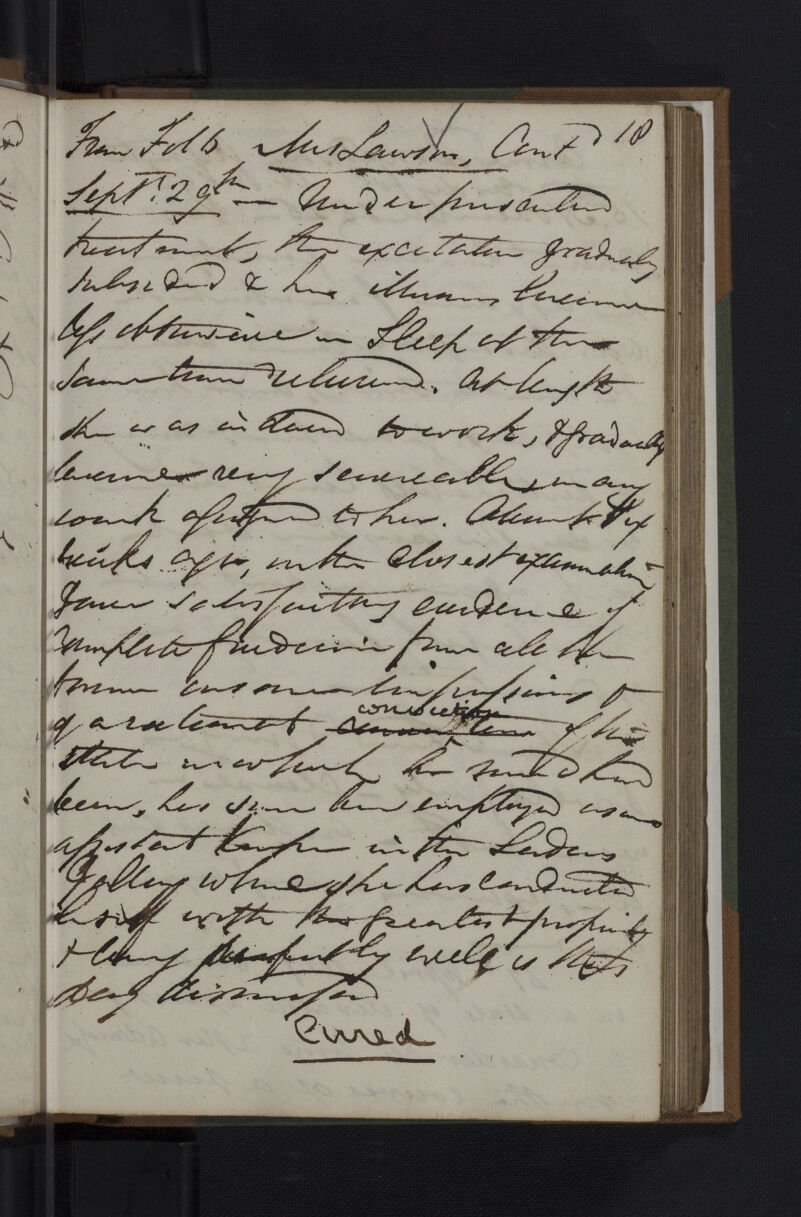 From Fol 6 Mrs Lawson, Contd 18
Sept. 29th — Under persevering
treatment, the excitation gradually
subsided & her illusions became
less obtrusive — Sleep at the
same time returned. At length
she was induced to work, & gradually
became very serviceable in any
work assigned to her. About six
weeks ago, on the closest examination
gave satisfactory evidence of
complete freedom from all the
former insane impressions &
of a rational conviction of the
state in which her mind had
been, has since been employed as an
assistant Keeper in the Ladies
Gallery where she has conducted
herself with the greatest propriety
& being perfectly well is this
day dismissed
Cured